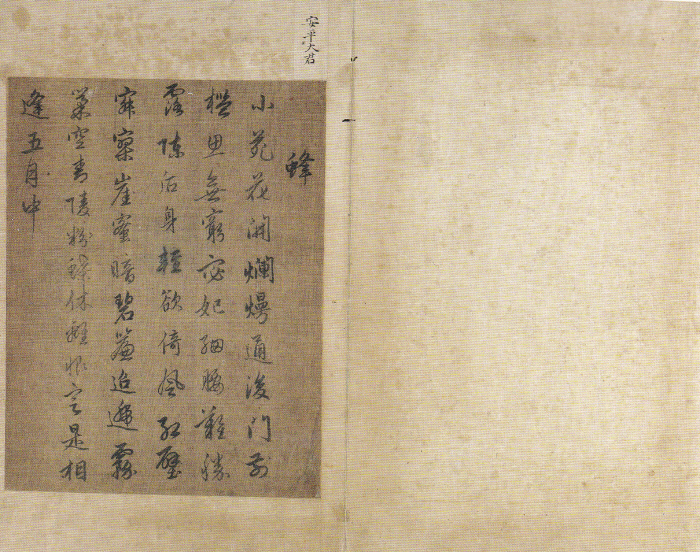 安平大君
蜂
小苑花開爛熳通後門前
檻思無窮宓妃細腰難勝
露陳后身輕欲倚風紅壁
寂寥崖蜜暗碧簾迢遞霧
巢空青陵粉蝶休離恨定是相
逢五月中